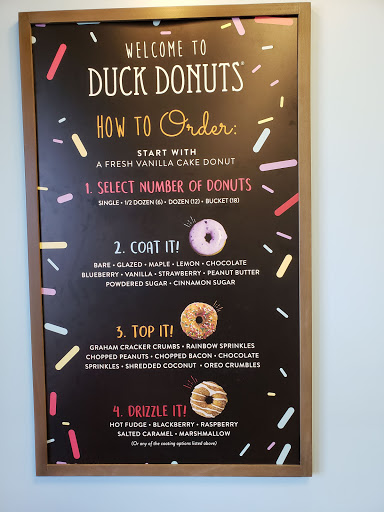 WELCOME TO
DUCK DONUTS®
HOW TO Order:
START WITH
A FRESH VANILLA CAKE DONUT
1. SELECT NUMBER OF DONUTS
SINGLE • 1/2 DOZEN (6) • DOZEN (12) • BUCKET (18)
2. COAT IT!
BARE • GLAZED • MAPLE • LEMON • CHOCOLATE
BLUEBERRY • VANILLA • STRAWBERRY • PEANUT BUTTER
POWDERED SUGAR • CINNAMON SUGAR
3. TOP IT!
GRAHAM CRACKER CRUMBS • RAINBOW SPRINKLES
CHOPPED PEANUTS • CHOPPED BACON • CHOCOLATE
SPRINKLES • SHREDDED COCONUT • OREO CRUMBLES
4. DRIZZLE IT!
HOT FUDGE • BLACKBERRY • RASPBERRY
SALTED CARAMEL • MARSHMALLOW
(Or any of the coating options listed above)